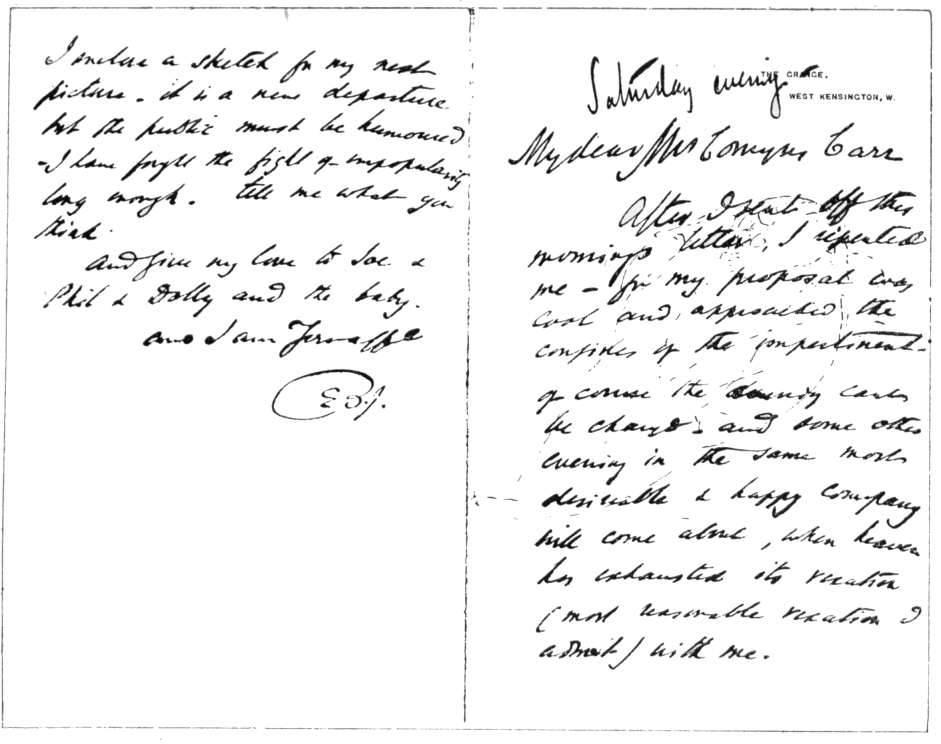 Saturday evening
THE GRANGE,
WEST KENSINGTON, W.
My dear Mrs Comyns Carr
After I sent off this
morning's letter, I repented
me - for my proposal was
cool and approached the
confines of the impertinent -
of course the Sunday can't
be changed - and some other
evening in the same most
desirable & happy company
will come about, when heaven
has exhausted its vexation
(most reasonable vexation I
admit) with me.
I enclose a sketch for my next
picture - it is a new departure
but the public must be humoured
- I have fought the fight of unpopularity
long enough. tell me what you
think.
and give my love to Joe &
Phil & Dolly and the baby.
and I am Yr aff
EBJ.